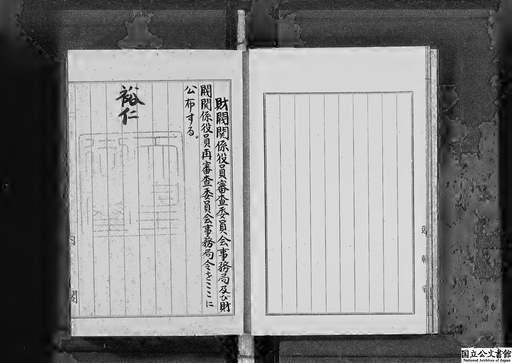 財閥関係役員審査委員会事務局及び財
閥関係役員再審査委員会事務局令をここに
公布する。
裕仁
内閣
国立公文書館
National Archives of Japan